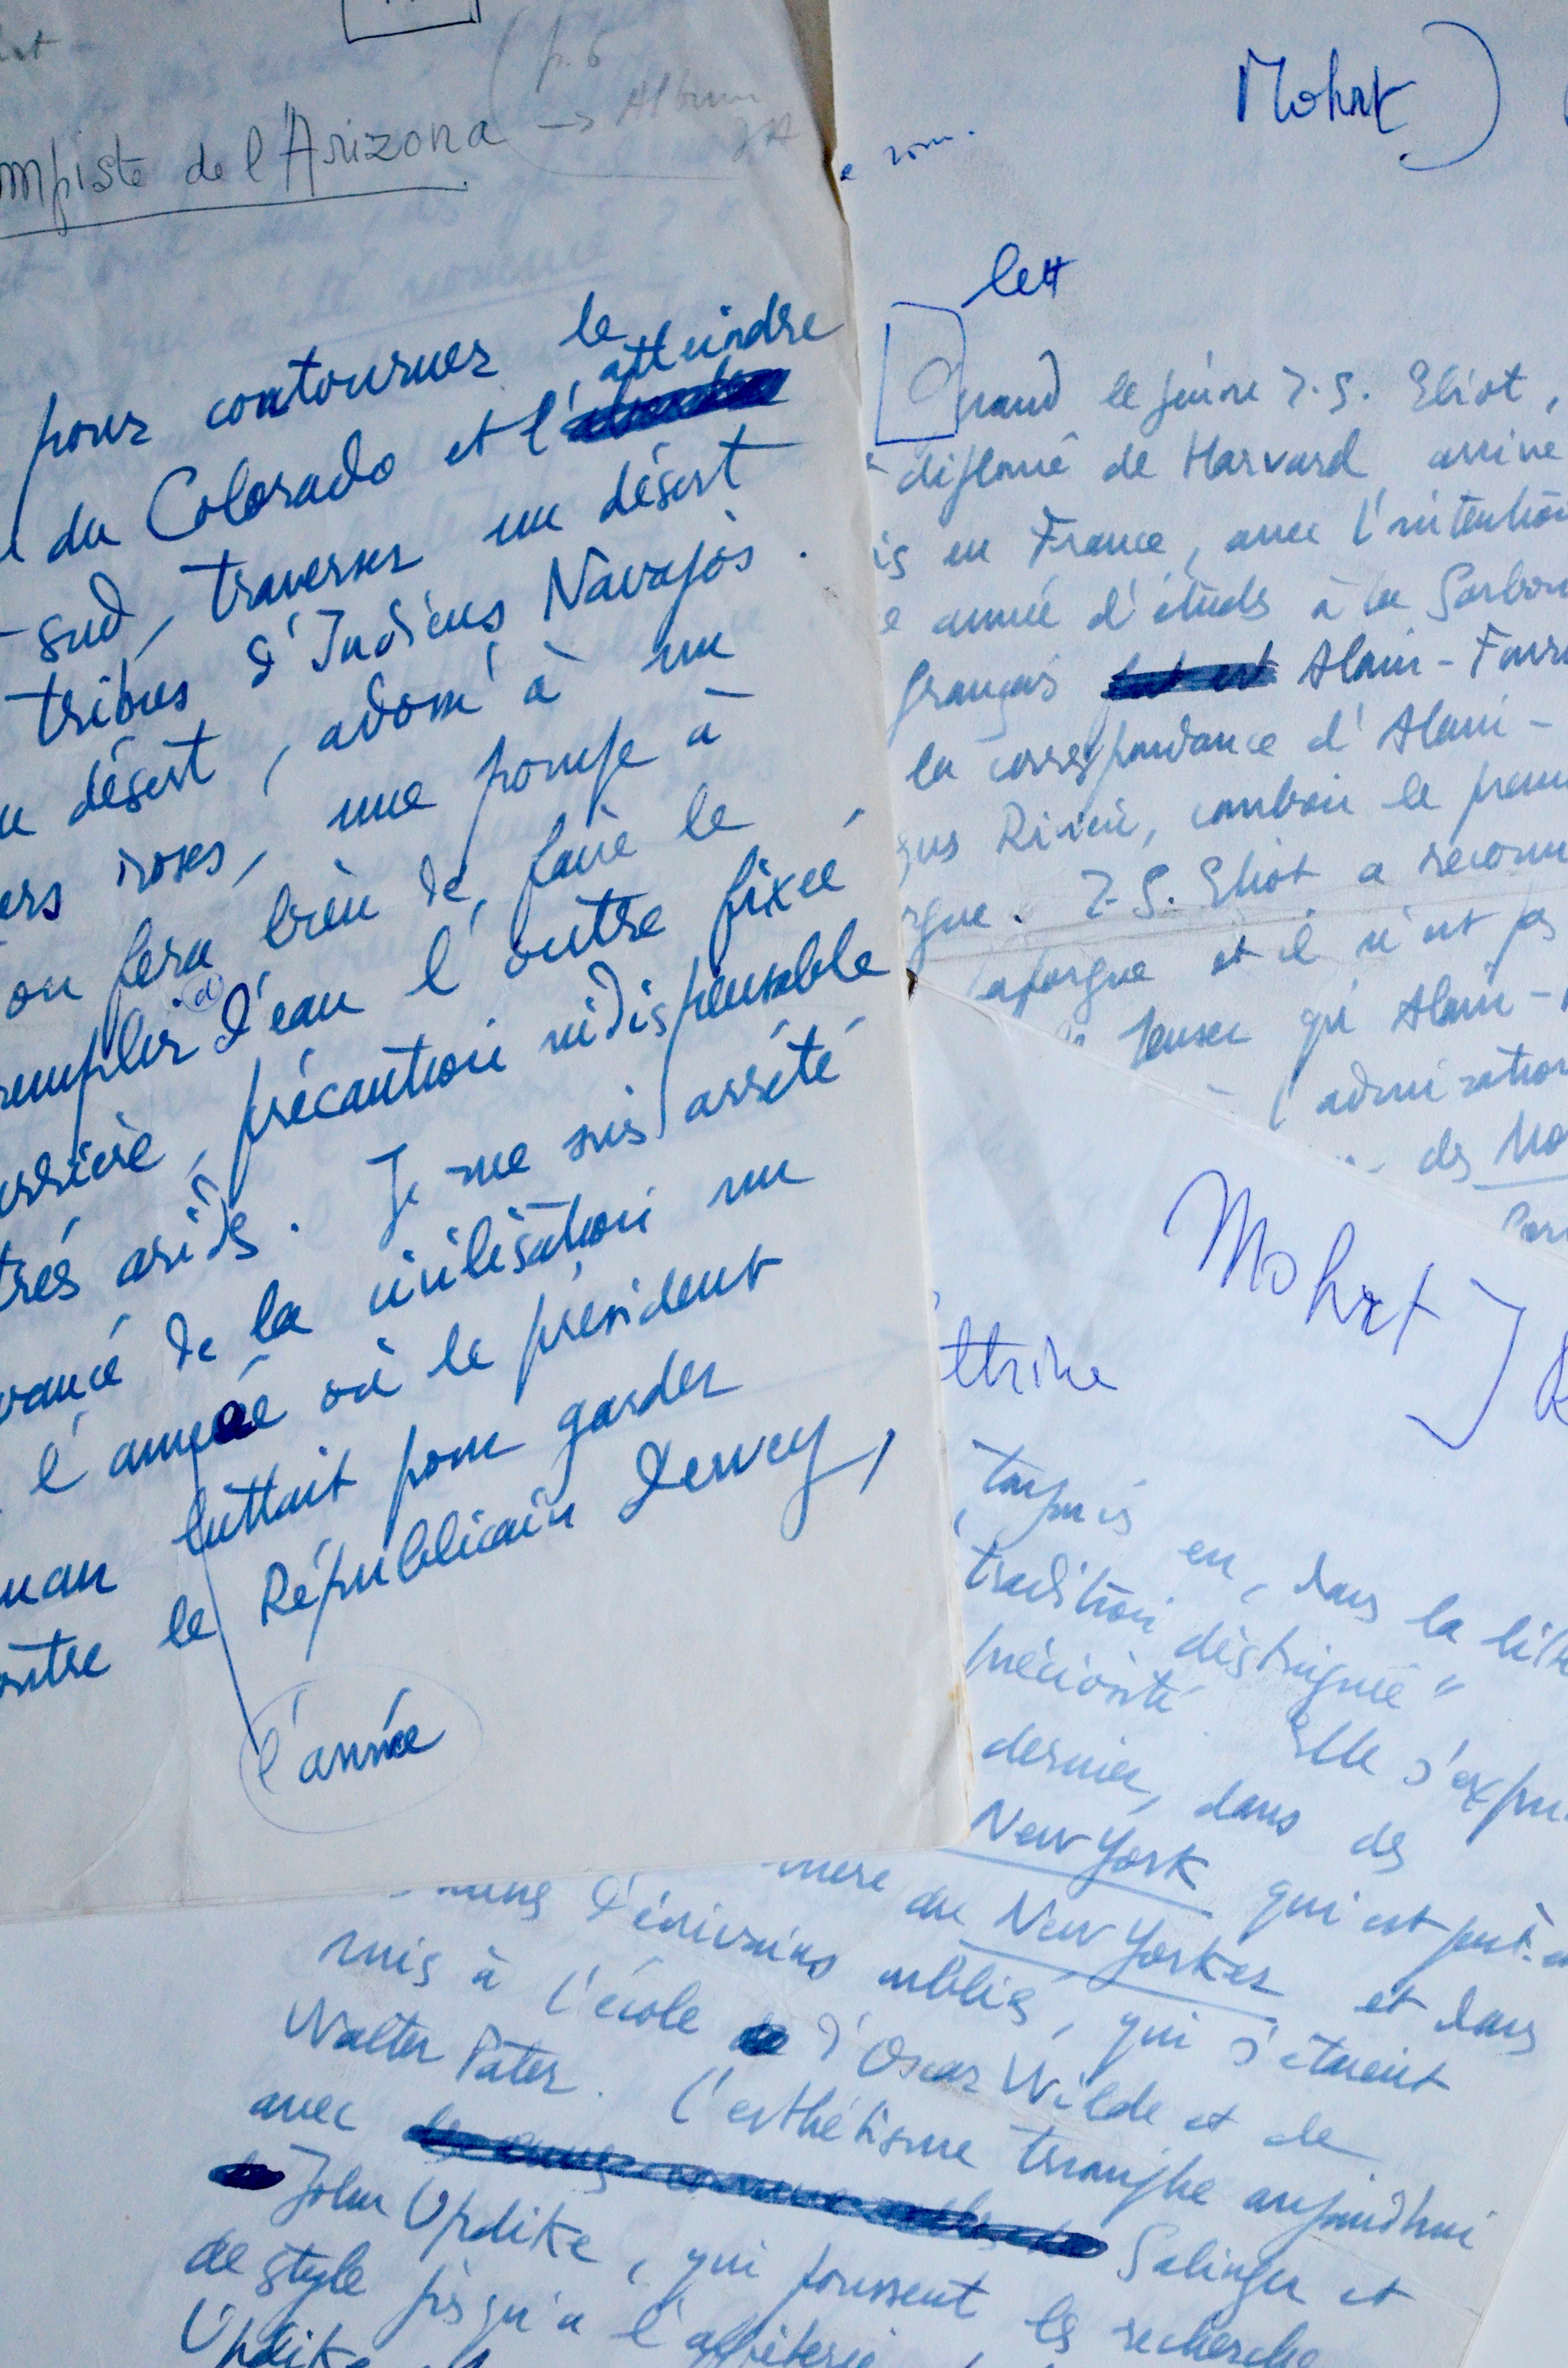 p. 6
mpiste de l'Arizona → Album
pour contourner le
du Colorado et l'atteindre
-sud, traverser un désert
tribus d'Indiens Navajos.
désert, adossé à un
ers roses, une pompe à
on fera bien de faire le
remplir d'eau l'outre fixée
précaution indispensable
très arides. Je me suis arrêté
vancé de la civilisation un
l'année où le président
man luttait pour garder
ontre le Républicain Dewey,
l'année
Mohrt)
rom.
lett
Quand le jeune T.S. Eliot,
diplomé de Harvard, arrive
is en France, avec l'intention
e année d'études à la Sorbon
français Alain-Four
la correspondance d'Alain-
ques Rivière, combien le prem
rgue. T.S. Eliot a reconn
Laforgue et il n'est pas
penser qu'Alain-
l'admiration
des Mo
Mohrt)
ttrine
toujours eu, dans la litté
tradition distinguée"
préciosité. Elle s'expri
dernier, dans des
New York qui est peut-
du New Yorker et dans
d'écrivains oubliés, qui s'étaient
mis à l'école d'Oscar Wilde et de
Walter Pater. L'esthétisme triomphe aujourd'hui
avec Salinger et
John Updike, qui poussent la recherche
de style jusqu'à l'afféterie
Updike